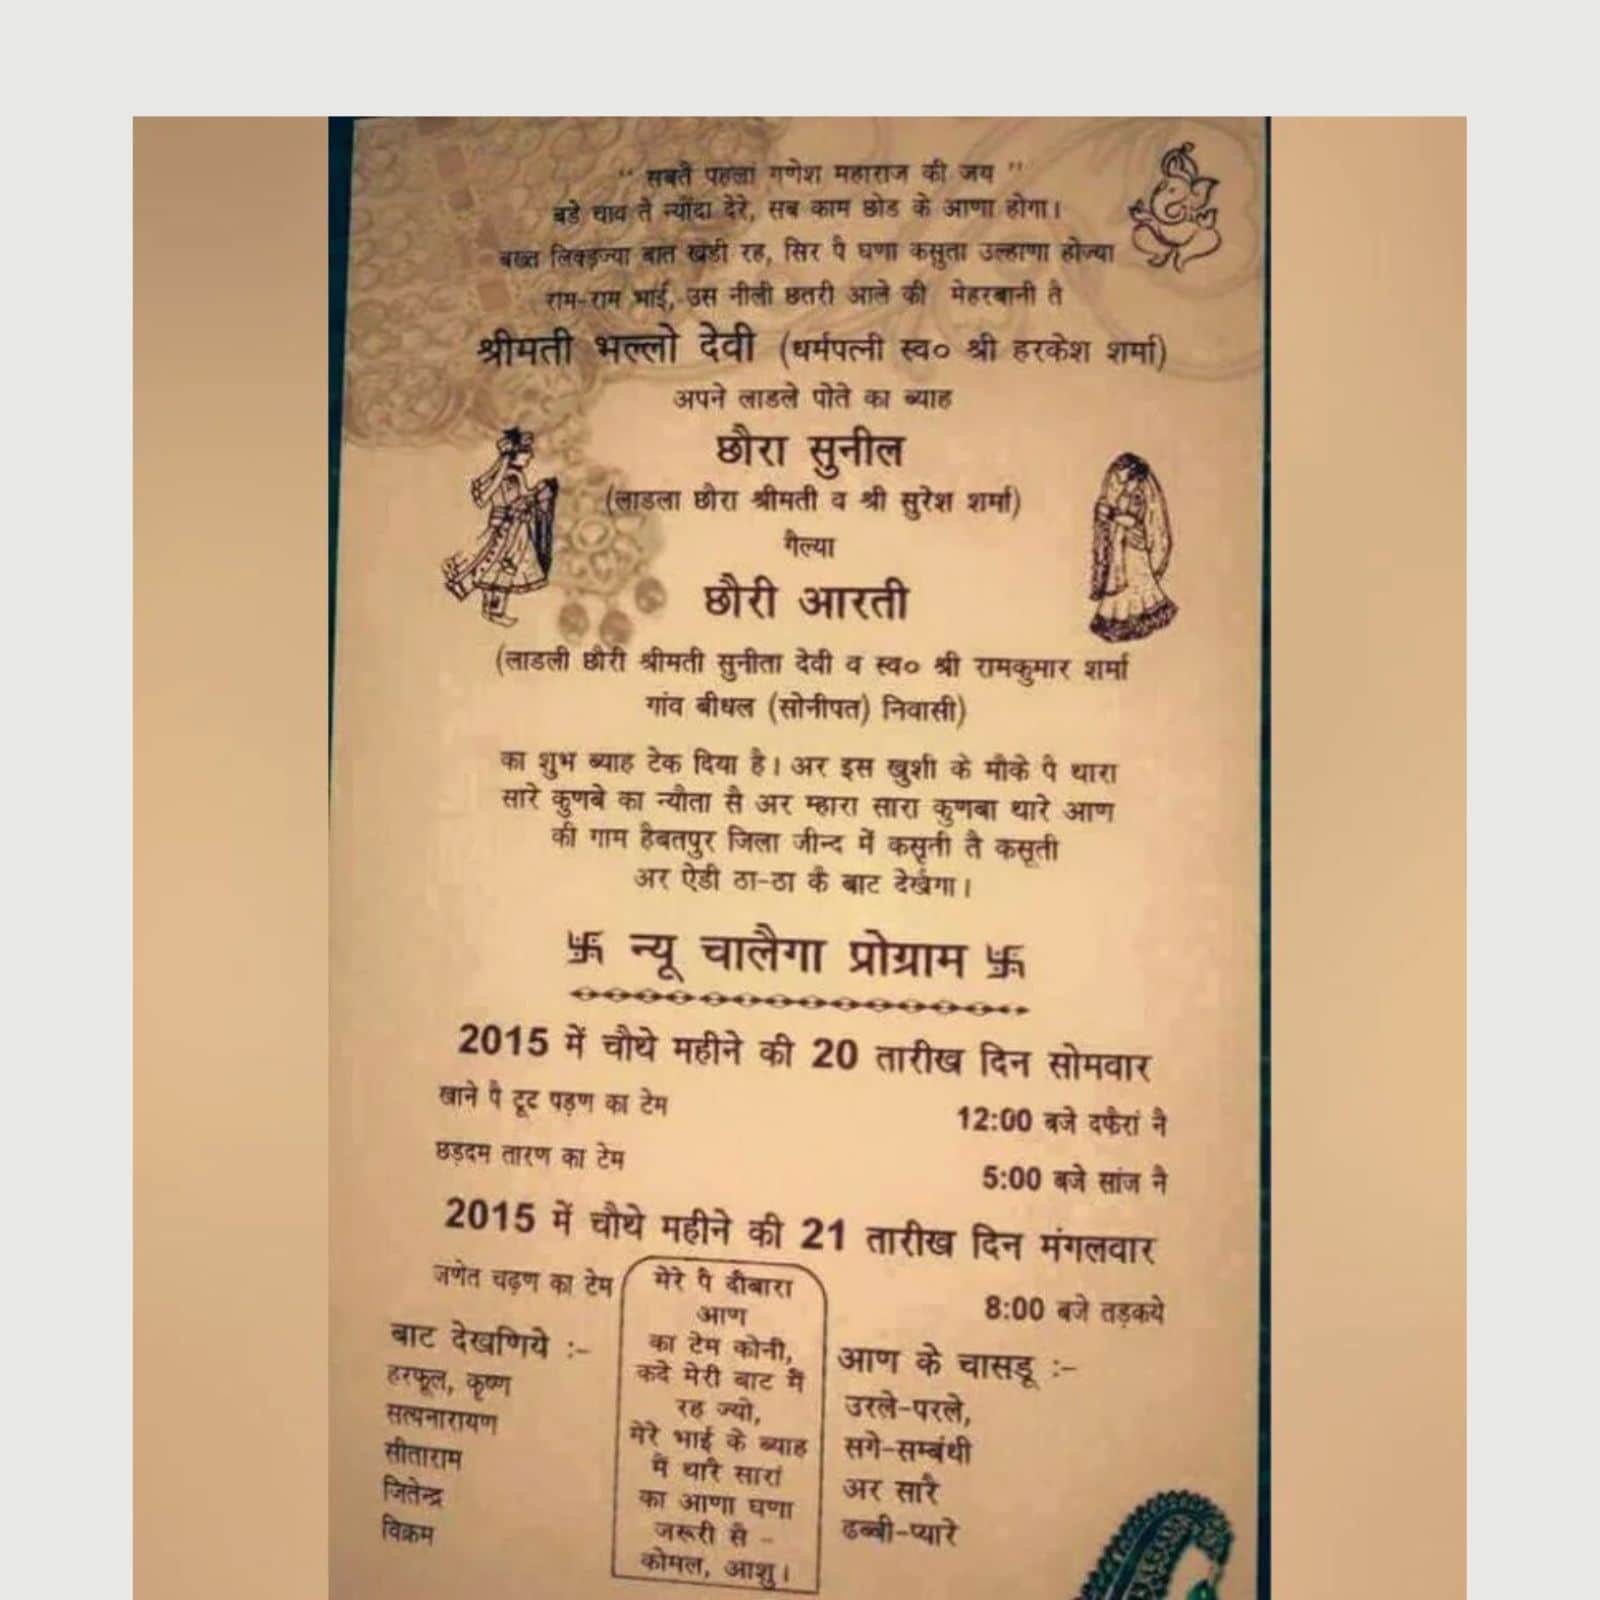 " सबतै पहलां गणेश महाराज की जय "
बडे चाव ते न्यौंदा देरे, सब काम छोड के आणा होगा।
बख्त लिकड़ज्या बात खडी रह, सिर पै घणा कसुता उल्हाणा होज्या
राम-राम भाई, उस नीली छतरी आले की मेहरबानी तै
श्रीमती भल्लो देवी (धर्मपत्नी स्व० श्री हरकेश शर्मा)
अपने लाडले पोते का ब्याह
छौरा सुनील
(लाडला छौरा श्रीमती व श्री सुरेश शर्मा)
गैल्या
छौरी आरती
(लाडली छौरी श्रीमती सुनीता देवी व स्व० श्री रामकुमार शर्मा
गांव बीधल (सोनीपत) निवासी)
का शुभ ब्याह टेक दिया है। अर इस खुशी के मौके पै थारा
सारे कुणबे का न्यौता सै अर म्हारा सारा कुणबा थारे आण
की गाम हैबतपुर जिला जीन्द में कसूती तै कसूती
अर ऐडी ठा-ठा कै बाट देखैगा।
卐 न्यू चालैगा प्रोग्राम 卐
2015 में चौथे महीने की 20 तारीख दिन सोमवार
खाने पै टूट पड़ण का टेम 12:00 बजे दफैरां नै
छड़दम तारण का टेम 5:00 बजे सांज नै
2015 में चौथे महीने की 21 तारीख दिन मंगलवार
जणेत चढ़ण का टेम 8:00 बजे तड़कये
बाट देखणिये :-
हरफूल, कृष्ण
सत्यनारायण
सीताराम
जितेन्द्र
विक्रम
मेरे पै दीबारा
आण
का टेम कोनी,
कदे मेरी बाट मैं
रह ज्यो,
मेरे भाई के ब्याह
मैं थारै सारां
का आणा घणा
जरूरी सै -
कोमल, आशु।
आण के चासडू :-
उरले-परले,
सगे-सम्बंधी
अर सारै
ढब्बी-प्यारे